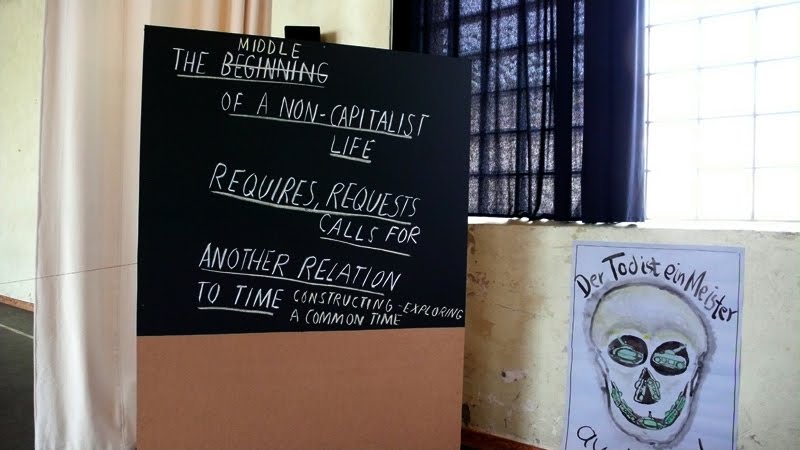 MIDDLE
THE BEGINNING
OF A NON-CAPITALIST
LIFE
REQUIRES, REQUESTS
CALLS FOR
ANOTHER RELATION
TO TIME CONSTRUCTING-EXPLORING
A COMMON TIME
Der Tod ist ein Meister